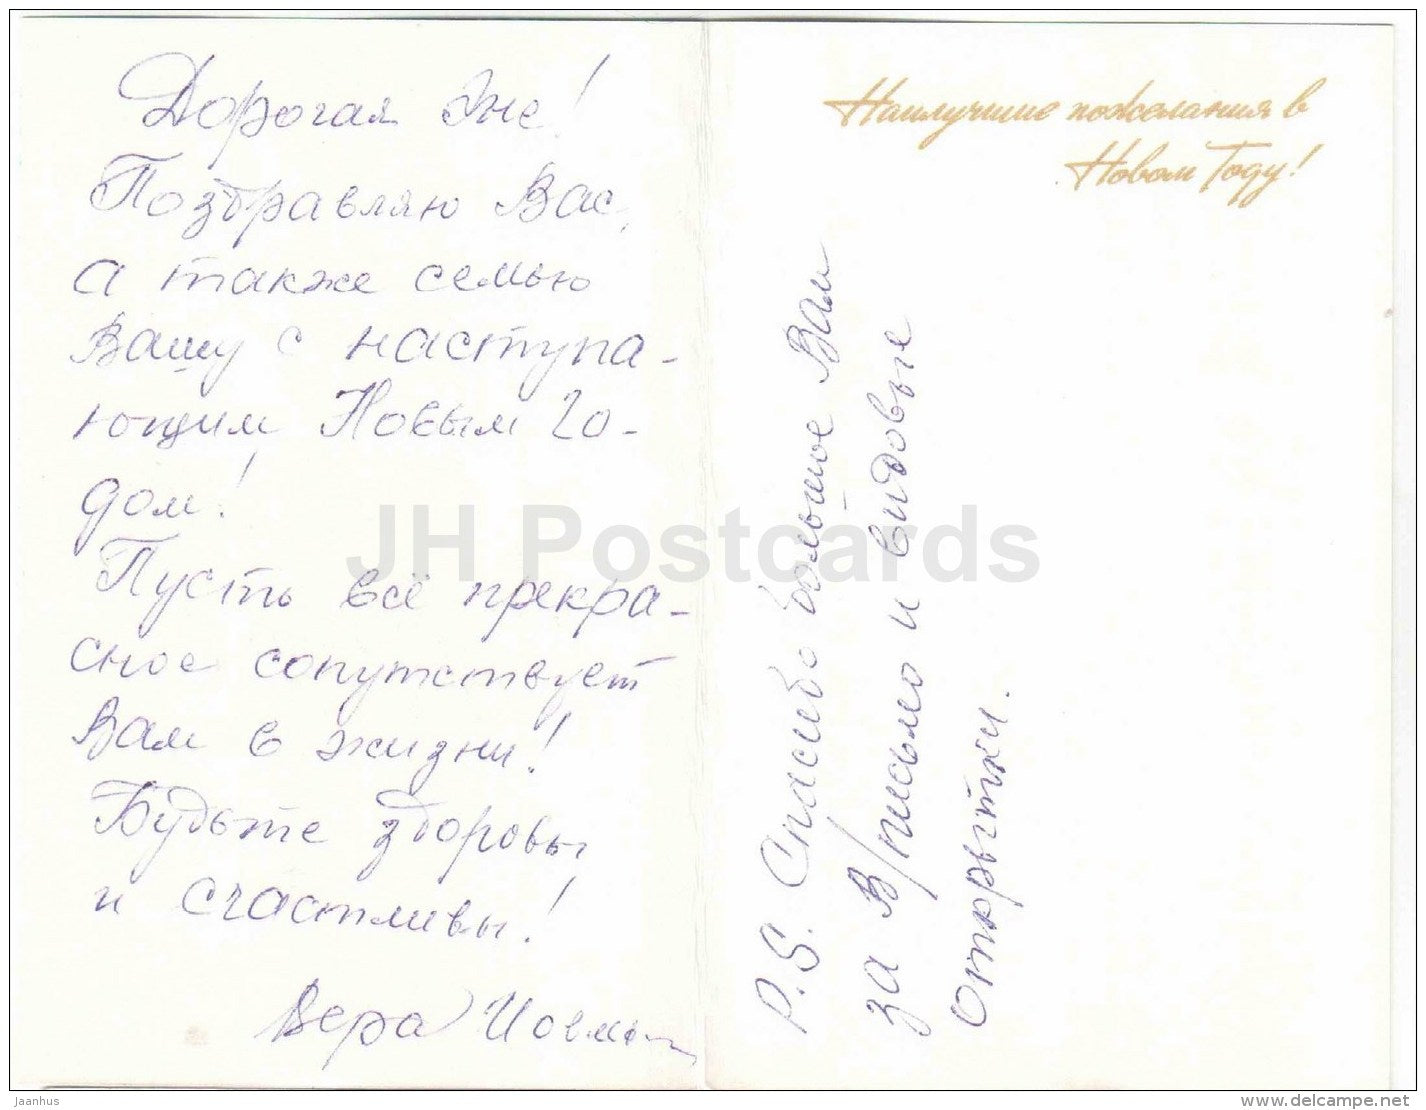 Дорогая Эне!
Поздравляю Вас,
а также семью
Вашу с наступа-
ющим Новым го-
дом!
Пусть всё прекра-
сное сопутствует
Вам в жизни!
Будьте здоровы
и счастливы!
Вера
Наилучшие пожелания в
Новом Году!
P.S. Спасибо большое Вам
за В/письмо и видовые
открытки.
JH Postcards
Jaanhus
delcampe.net